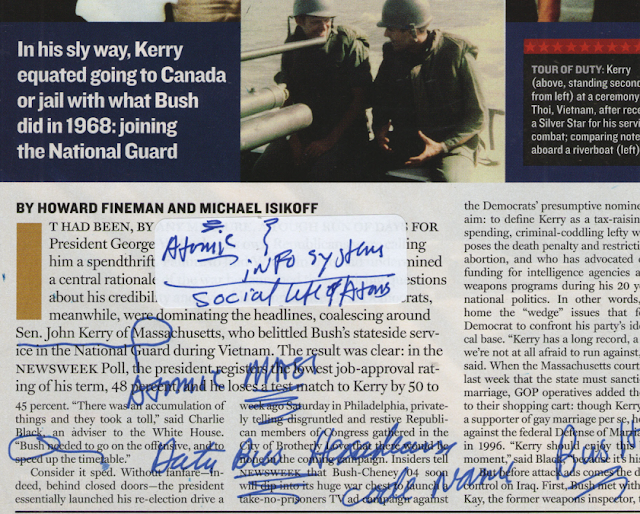 In his sly way, Kerry
equated going to Canada
or jail with what Bush
did in 1968: joining
the National Guard
TOUR OF DUTY: Kerry
(above, standing second
from left) at a ceremony
Thoi, Vietnam, after rece
a Silver Star for his servi
combat; comparing note
aboard a riverboat (left)
BY HOWARD FINEMAN AND MICHAEL ISIKOFF
IT HAD BEEN, BY FOR
President George
him a spendthrift
a central rationale
about his credibil
meanwhile, were dominating the headlines, coalescing around
Sen. John Kerry of Massachusetts, who belittled Bush's stateside serv-
ice in the National Guard during Vietnam. The result was clear: in the
NEWSWEEK Poll, the president registered his lowest job-approval rat-
ing of his term, 48 percent, and he loses a test match to Kerry by 50 to
Atomic
info system
social life of Atoms
Atomic
45 percent. "There was an accumulation of
things and they took a toll," said Charlie
Black, an adviser to the White House.
"Bush needed to go on the offensive, and to
speed up the timetable."
Consider it sped. Without fanfare—in-
deed, behind closed doors—the president
essentially launched his re-election drive a
week ago Saturday in Philadelphia, private-
ly telling disgruntled and restive Republi-
can members of Congress gathered in the
City of Brotherly Love that there would be
more in the coming campaign. Insiders tell
NEWSWEEK that Bush-Cheney '04 soon
will dip into its huge war chest to launch a
take-no-prisoners TV ad campaign against
Data
code name
the Democrats' presumptive nomine
aim: to define Kerry as a tax-raisin
spending, criminal-coddling lefty w
poses the death penalty and restricti
abortion, and who has advocated c
funding for intelligence agencies a
weapons programs during his 20 ye
national politics. In other words,
home the "wedge" issues that fo
Democrat to confront his party's ide
cal base. "Kerry has a long record, a
we're not at all afraid to run against
said. When the Massachusetts court
last week that the state must sancti
marriage, GOP operatives added the
to their shopping cart: though Kerry
a supporter of gay marriage per se, h
against the federal Defense of Marr
in 1996. "Kerry should enjoy this
moment," said Black, "because it's his
But before attack ads comes the
control on Iraq. First, Bush met with
Kay, the former weapons inspector, t